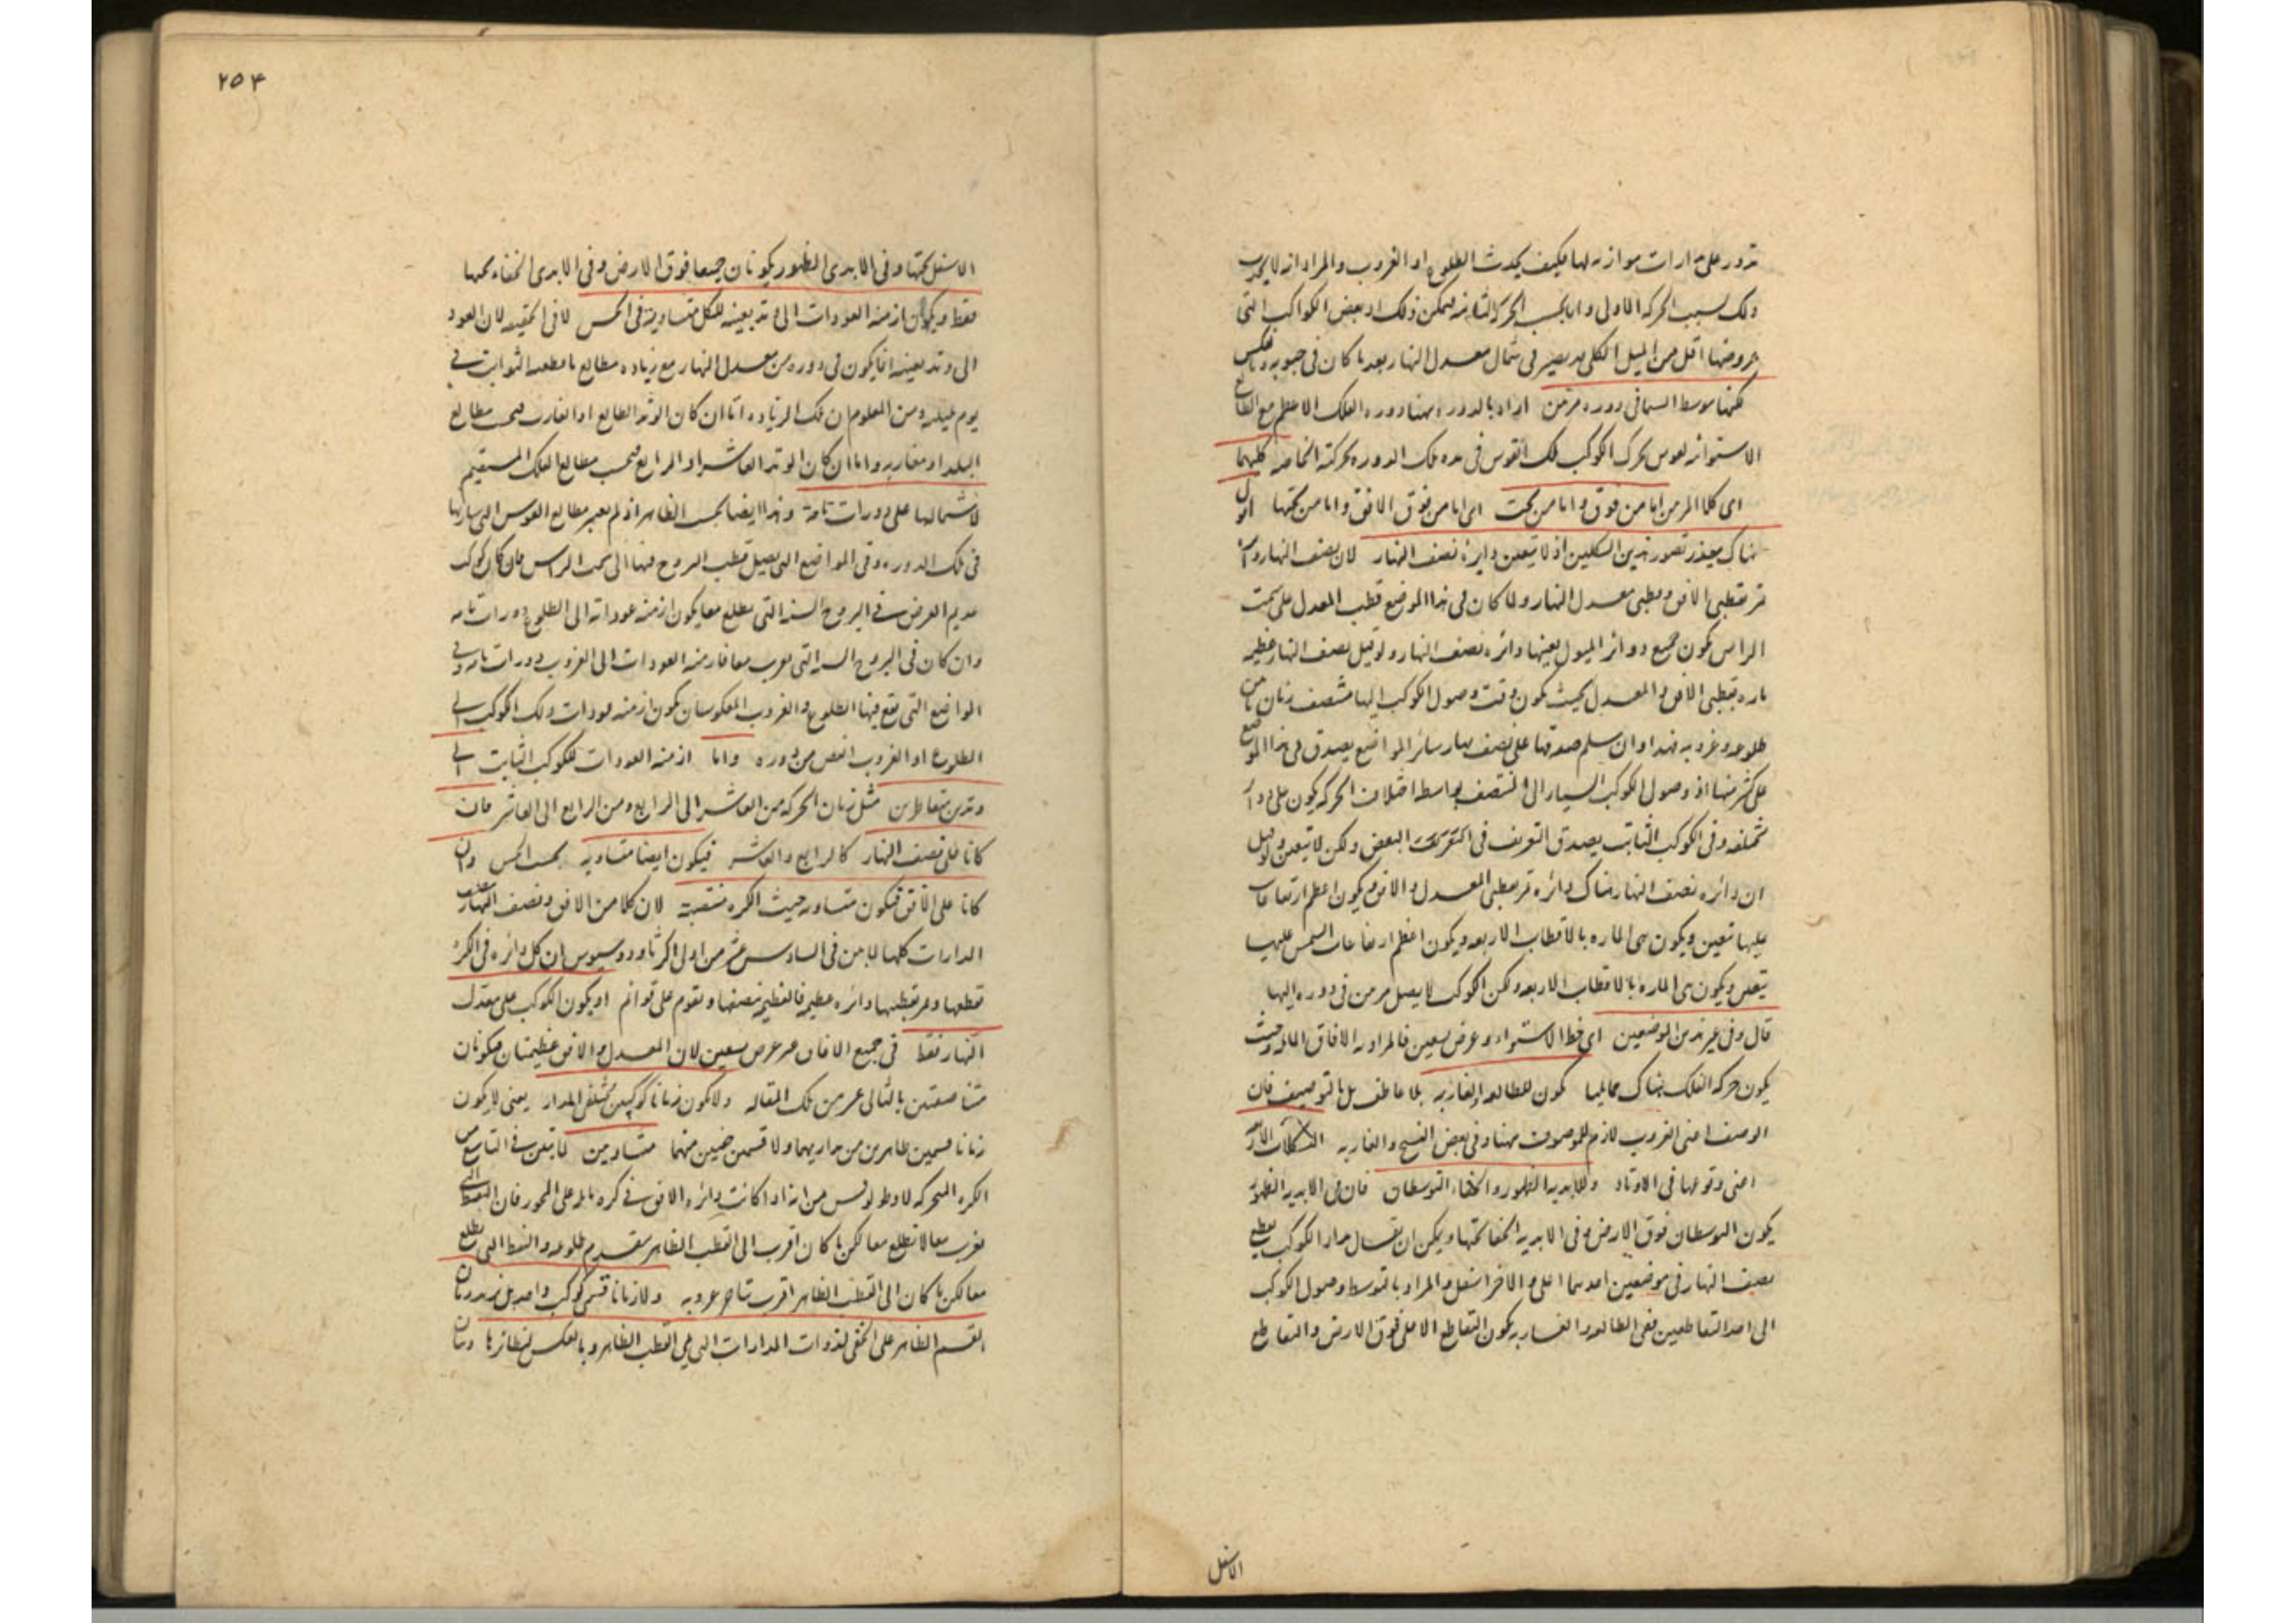 تدور على مدارات موازية لها فكيف يحدث الطلوع او الغروب والمراد انه لا يحدث
ذلك بسبب الحركة الاولى واما بحسب الحركة الثانية فيمكن ذلك اذ بعض الكواكب التى
عروضها اقل من الميل الكلى قد يصير فى شمال معدل النهار بعد ما كان فى جنوبه وبالعكس
توسط السما فى دورة مرتين اراد بالدورة ههنا دورة الفلك الاعظم مع الطالع
الاستوائية لقوس تحرك الكوكب تلك القوس فى مدة تلك الدورة بحركته الخاصة كليهما
اى كلا المرمن اما من فوق واما من تحت اى اما من فوق الافق واما من تحتها اقول
هناك يتعذر تصور هذين الشكلين اذ لا يتعين دايرة نصف النهار لان نصف النهار دائرة
تمر بقطبى الافق وبقطبى معدل النهار ولما كان فى هذا الموضع قطب المعدل على سمت
الراس يكون جميع دوائر الميول بعينها دائرة نصف النهار ولو قيل نصف النهار عظيمة
مارة بقطبى الافق والمعدل بحيث يكون وقت وصول الكوكب اليها منتصف زمان ما بين
طلوعه وغروبه فهذا وان سلم صدقها على نصف نهار سائر المواضع يصدق فى هذا الموضع
على كثير منها اذ وصول الكوكب السيار الى المنتصف بواسطة اختلاف الحركة يكون على دوائر
مختلفة وفى الكوكب الثابت يصدق التعريف فى البعض ولكن لا يتعين ولو قيل
ان دائرة نصف النهار هناك دائرة تمر بقطبى المعدل والافق ويكون اعظم ارتفاعات
عليها تتعين ويكون هى المارة بالاقطاب الاربعة ويكون اعظم ارتفاعات الشمس عليها
يتعين ويكون هى المارة بالاقطاب الاربعة ولكن الكوكب لا يصل مرتين فى دورة اليها
قال وفى غير هذين الموضعين اى خط الاستواء وعرض تسعين فالمراد به الافاق المائلة وحيث
يكون حركة الفلك هناك حمايليا يكون للطالعة الغاربة بلا عاطف بل بالتوصيف فان
الوصف اعنى الغروب لازم للموصوف ههنا وفى بعض النسخ والغاربة الشكلات الاربعة
اعنى وقوعها فى الاوتاد وللابدية الظهور والخفاء التوسطان فان فى الابدية الظهور
يكون التوسطان فوق الارض وفى الابدية الخفا تحتها ويمكن ان يقال مدار الكوكب يقطع
نصف النهار فى موضعين احدهما اعلى والاخر اسفل والمراد بالتوسط وصول الكوكب
الى احد التقاطعين ففى الطالعة الغاربة يكون التقاطع الاعلى فوق الارض والتقاطع
الاسفل
٢٥٤
الاسفل تحتها وفى الابدى الظهور يكونان جميعا فوق الارض وفى الابدى الخفاء تحتها
فقط ويكون ازمنة العودات الى وتد بعينه للكل متساوية فى الحس لا فى الحقيقة لان العود
الى وتد بعينه انما يكون فى دورة من معدل النهار مع زيادة مطالع ما قطعه الثوابت فى
يوم بليلة ومن المعلوم ان تلك الزيادة اما ان كان الوتد الطالع او الغارب فبحسب مطالع
البلد او مغاربه واما ان كان الوتد العاشر او الرابع فبحسب مطالع الفلك المستقيم
لاشتمالها على دورات تامة وهذا ايضا بحسب الظاهر اذ لم يعتبر مطالع القوس التى سارتها
فى تلك الدورة وفى المواضع التى يصل قطب البروج فيها الى سمت الراس فان كان كوكب
عديم العرض فى البروج الستة التى تطلع معا يكون ازمنة عوداته الى الطلوع دورات تامة
وان كان فى البروج الستة التى تغرب معا فازمنة العودات الى الغروب دورات تامة وفى
المواضع التى تقع فيها الطلوع والغروب المعكوسان يكون ازمنة عودات ذلك الكوكب الى
الطلوع او الغروب انقص من دورة واما ازمنة العودات للكوكب الثابت الى
وتدين متقاطرين مثل زمان الحركة من العاشر الى الرابع ومن الرابع الى العاشر فان
كانا على نصف النهار كالرابع والعاشر فيكون ايضا متساوية بحسب الحس وان
كانا على الافق فيكون متساوية حيث الكرة منتصبة لان كلا من الافق ونصف النهار ينصف
المدارات كلها لما بين فى السادس عشر من اولى اكر ثاودوسيوس ان كل دائرة فى الكرة
تقطعها وتمر بقطبيها دائرة عظيمة فالعظيمة تنصفها وتقوم على قوائم او يكون الكوكب على معدل
النهار فقط فى جميع الافاق غير عرض تسعين لان المعدل والافق عظيمتان فيكونان
متناصفتين بالثانى عشر من تلك المقالة ولا يكون زمانا كوكبين مختلفى المدار يعنى لا يكون
زمانا قسمين ظاهرين من مداريهما ولا قسمين خفيين منهما متساويين لما تبين فى التاسع من
الكرة المتحركة لاوطولوقس من انه اذا كانت دائرة الافق فى كرة مائلة على المحور فان النقط التى
تغرب معا لا تطلع معا لكن ما كان اقرب الى القطب الظاهر يتقدم طلوعه والنقط التى تطلع
معا لكن ما كان الى القطب الظاهر اقرب يتاخر غروبه ولا زمانا قسمى كوكب واحد بل يزيد زمان
القسم الظاهر على الخفى لذوات المدارات التى تلى القطب الظاهر وبالعكس لنظائرها وزمان